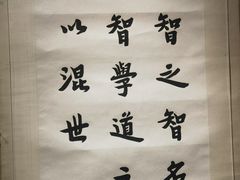 智之智名
智學道之
以混世